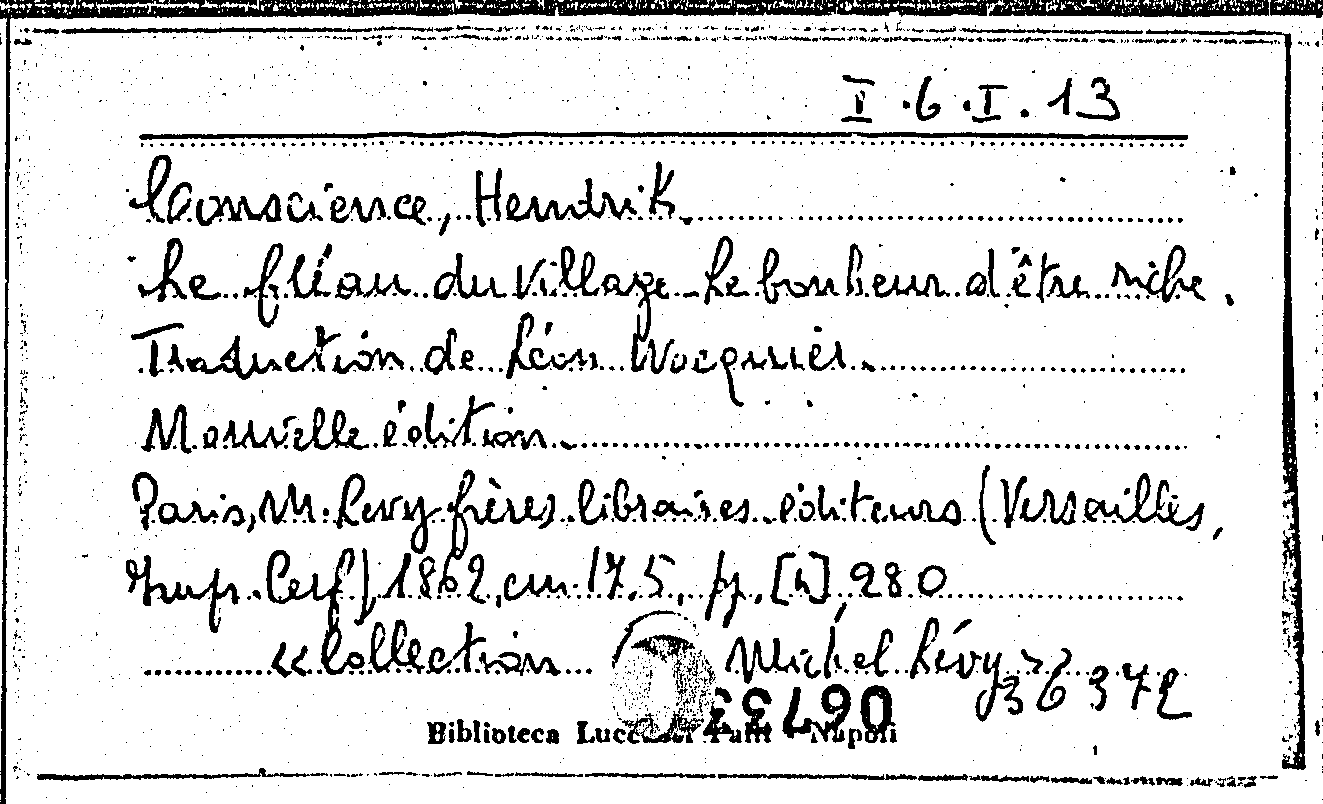 I.6.I.13
Conscience, Hendrik.
Le fléau du village - Le bonheur d'être riche.
Traduction de Léon Wocquier.
Nouvelle édition.
Paris, M. Levy frères libraires éditeurs (Versailles,
Impr. Cerf), 1862, cm. 17.5, pp. [4], 280
«Collection Michel Lévy»
36372
Biblioteca Napoli